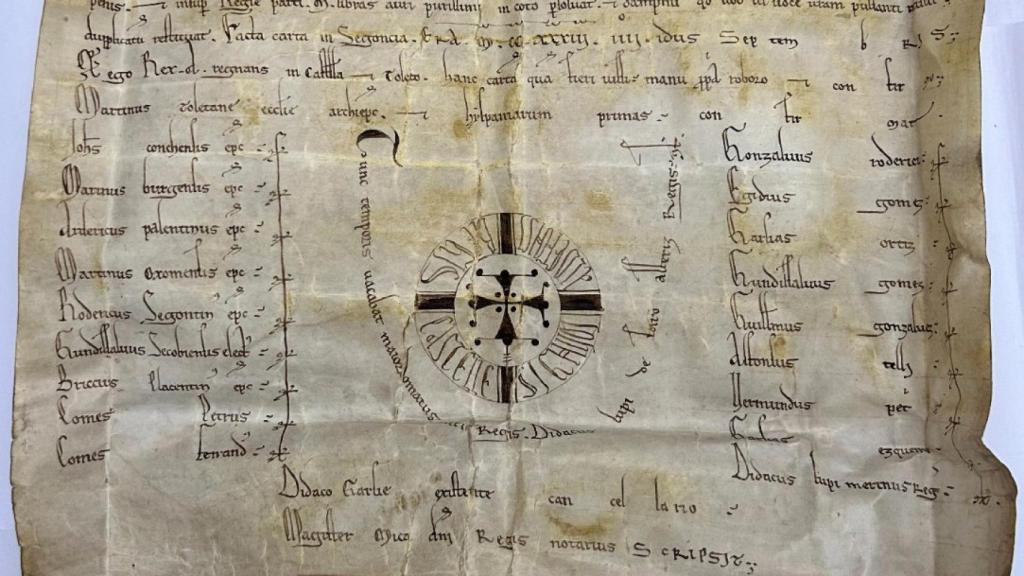 penis. et insup Regie parti. M. libras auri purissimi in coto psoluat. et dampnū
duplicatū restituat. Facta carta in Segoncia. ERA. M. CC. XXXIII. IIII. idus Septembris.
Et ego Rex. A. regnans in Castella et Toleto. hanc cartā quā fieri iussi manu ppā roboro et confirmo
Martinus toletane ecclie archiepc. et hyspaniarum primas con fir mat
Iohs conchensis epc
Martinus burgensis epc
Ardericus palentinus epc
Martinus Oxomensis epc
Rodericus Segontin epc
Gundissaluus Secobiensis elect
Briccius Placentin epc
Comes Petrus
Comes Fernand
Tunc temporis uacabat maiordomatus
Regis. Didacus lupi de faro alferiz Regis
SIGNUM ALDEFONSI REGIS CASTELLE
Gonzaluus roderici
Egidius gomez
Garsias ortiz
Gundissaluus gomez
Guilmus gonzalui
Alfonsus telli
Uermundus pet
Didacus lupi merinus Reg
Didaco Garsie existente can cel la rio
Magister Mico dni Regis notarius SCRIPSIT